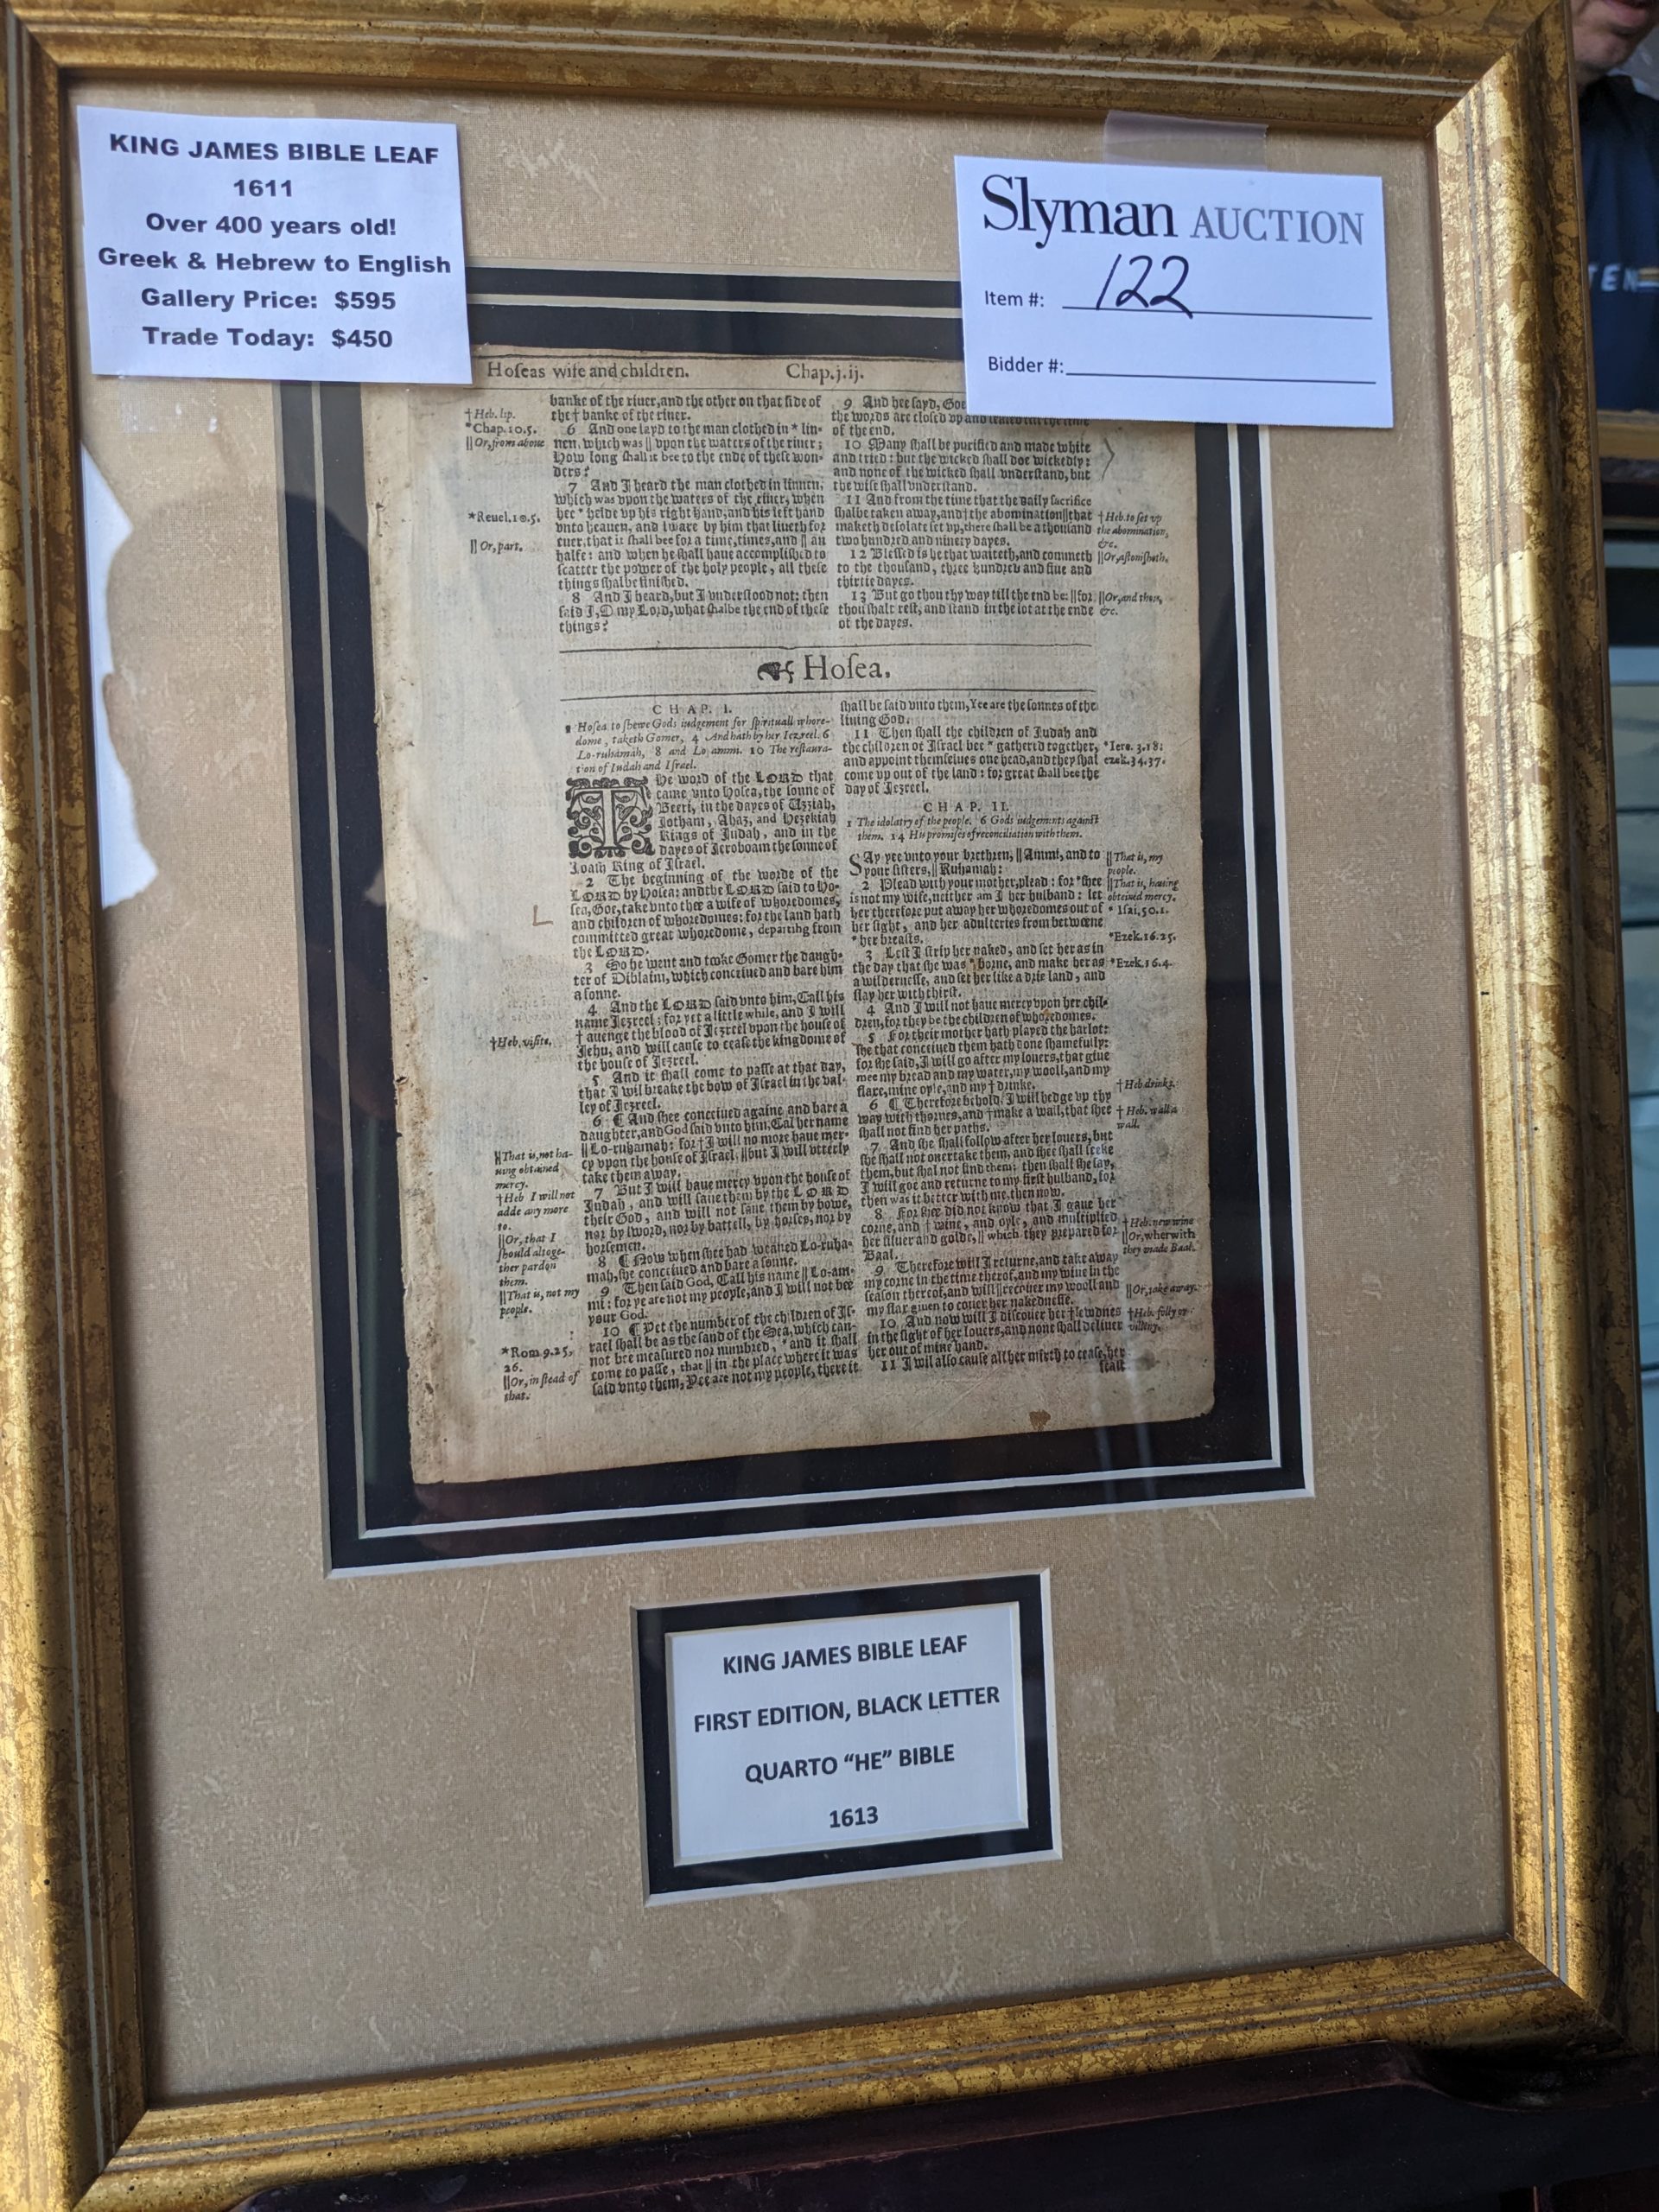 KING JAMES BIBLE LEAF
1611
Over 400 years old!
Greek & Hebrew to English
Gallery Price: $595
Trade Today: $450
Slyman AUCTION
Item #: 122
Bidder #:
TEN
Hoſeas wife and children.
Chap.j.ij.
† Heb. lip.
*Chap.10.5.
|| Or, from aboue
*Reuel.10.5.
|| Or, part.
banke of the riuer, and the other on that ſide of
the † banke of the riuer.
6 And one ſayd to the man clothed in * lin-
nen, which was || vpon the waters of the riuer;
How long ſhall it bee to the ende of theſe won-
ders?
7 And I heard the man clothed in linnen,
which was vpon the waters of the riuer, when
hee * helde vp his right hand, and his left hand
vnto heauen, and ſware by him that liueth for
euer, that it ſhall bee for a time, times, and || an
halfe: and when he ſhall haue accompliſhed to
ſcatter the power of the holy people, all theſe
things ſhalbe finiſhed.
8 And I heard, but I vnderſtood not: then
ſaid I, O my Lord, what ſhalbe the end of theſe
things?
9 And hee ſayd, Goe
the words are cloſed vp and
of the end.
10 Many ſhall be purified and made white
and tried: but the wicked ſhall doe wickedly:
and none of the wicked ſhall vnderſtand, but
the wiſe ſhall vnderſtand.
11 And from the time that the daily ſacrifice
ſhalbe taken away, and † the abomination || that
maketh deſolate ſet vp, there ſhall be a thouſand
two hundred and ninety dayes.
12 Bleſſed is he that waiteth, and commeth
to the thouſand, three hundred and fiue and
thirtie dayes.
13 But go thou thy way till the end be: || for
thou ſhalt reſt, and ſtand in the lot at the ende
of the dayes.
† Heb. to ſet vp
the abomination,
&c.
|| Or, aſtoniſheth.
|| Or, and thou,
&c.
Hoſea.
CHAP. I.
1 Hoſea to ſhewe Gods iudgement for ſpirituall whore-
dome, taketh Gomer, 4 And hath by her Iezreel. 6
Lo-ruhamah, 8 and Lo ammi. 10 The reſtaura-
tion of Iudah and Iſrael.
THe word of the LORD that
came vnto Hoſea, the ſonne of
Beeri, in the dayes of Uzziah,
Jotham, Ahaz, and Hezekiah
Kings of Judah, and in the
dayes of Jeroboam the ſonne of
Joaſh King of Iſrael.
2 The beginning of the worde of the
LORD by Hoſea: and the LORD ſaid to Ho-
ſea, Goe, take vnto thee a wife of whoredomes,
and children of whoredomes: for the land hath
committed great whoredome, departing from
the LORD.
3 So he went and tooke Gomer the daugh-
ter of Diblaim, which conceiued and bare him
a ſonne.
4 And the LORD ſaid vnto him, Call his
name Jezreel; for yet a little while, and I will
† auenge the blood of Jezreel vpon the houſe of
Jehu, and will cauſe to ceaſe the kingdome of
the houſe of Jezreel.
5 And it ſhall come to paſſe at that day,
that I wil breake the bow of Iſrael in the val-
ley of Jezreel.
6 ¶ And ſhee conceiued againe and bare a
daughter, and God ſaid vnto him, Cal her name
|| Lo-ruhamah: for † I will no more haue mer-
cy vpon the houſe of Iſrael; || but I will vtterly
take them away.
7 But I will haue mercy vpon the houſe of
Judah, and will ſaue them by the LORD
their God, and will not ſaue them by bowe,
nor by ſword, nor by battell, by horſes, nor by
horſemen.
8 ¶ Now when ſhee had weaned Lo-ruha-
mah, ſhe conceiued and bare a ſonne.
9 Then ſaid God, Call his name || Lo-am-
mi: for ye are not my people, and I will not bee
your God.
10 ¶ Yet the number of the children of Iſ-
rael ſhall be as the ſand of the Sea, which can-
not bee meaſured nor numbred, * and it ſhall
come to paſſe, that || in the place where it was
ſaid vnto them, Yee are not my people, there it
† Heb. viſite.
|| That is, not ha-
uing obtained
mercy.
† Heb I will not
adde any more
to.
|| Or, that I
ſhould altoge-
ther pardon
them.
|| That is, not my
people.
*Rom 9.25,
26.
|| Or, in ſtead of
that.
ſhall be ſaid vnto them, Yee are the ſonnes of the
liuing God.
11 Then ſhall the children of Judah and
the children of Iſrael bee * gathered together,
and appoint themſelues one head, and they ſhal
come vp out of the land: for great ſhall bee the
day of Jezreel.
CHAP. II.
1 The idolatry of the people. 6 Gods iudgements againſt
them. 14 His promiſes of reconciliation with them.
SAy yee vnto your brethren, || Ammi, and to
your ſiſters, || Ruhamah:
2 Plead with your mother, plead: for * ſhee
is not my wife, neither am I her huſband: let
her therefore put away her whoredomes out of
her ſight, and her adulteries from betweene
* her breaſts.
3 Leſt I ſtrip her naked, and ſet her as in
the day that ſhe was * borne, and make her as
a wilderneſſe, and ſet her like a drie land, and
ſlay her with thirſt.
4 And I will not haue mercy vpon her chil-
dren, for they be the children of whoredomes.
5 For their mother hath played the harlot:
ſhe that conceiued them hath done ſhamefully:
for ſhe ſaid, I will go after my louers, that giue
mee my bread and my water, my wooll, and my
flaxe, mine oyle, and my † drinke.
6 ¶ Therefore behold, I will hedge vp thy
way with thornes, and † make a wall, that ſhee
ſhall not find her paths.
7 And ſhe ſhall follow after her louers, but
ſhe ſhall not ouertake them, and ſhee ſhall ſeeke
them, but ſhal not find them: then ſhall ſhe ſay,
I will goe and returne to my firſt huſband, for
then was it better with me, then now.
8 For ſhee did not know that I gaue her
corne, and † wine, and oyle, and multiplied
her ſiluer and golde, || which they prepared for
Baal.
9 Therefore will I returne, and take away
my corne in the time therof, and my wine in the
ſeaſon thereof, and will || recouer my wooll and
my flax giuen to couer her nakedneſſe.
10 And now will I diſcouer her † lewdnes
in the ſight of her louers, and none ſhall deliuer
her out of mine hand.
11 I wil alſo cauſe all her mirth to ceaſe, her
feaſt
*Iere. 3.18:
ezek.34.37.
|| That is, my
people.
|| That is, hauing
obteined mercy.
* Iſai.50.1.
*Ezek.16.25.
*Ezek.16.4.
† Heb. drinks.
† Heb. wall a
wall.
† Heb. new wine
|| Or, wherwith
they made Baal.
|| Or, take away.
† Heb. folly or
villeny.
KING JAMES BIBLE LEAF
FIRST EDITION, BLACK LETTER
QUARTO “HE” BIBLE
1613